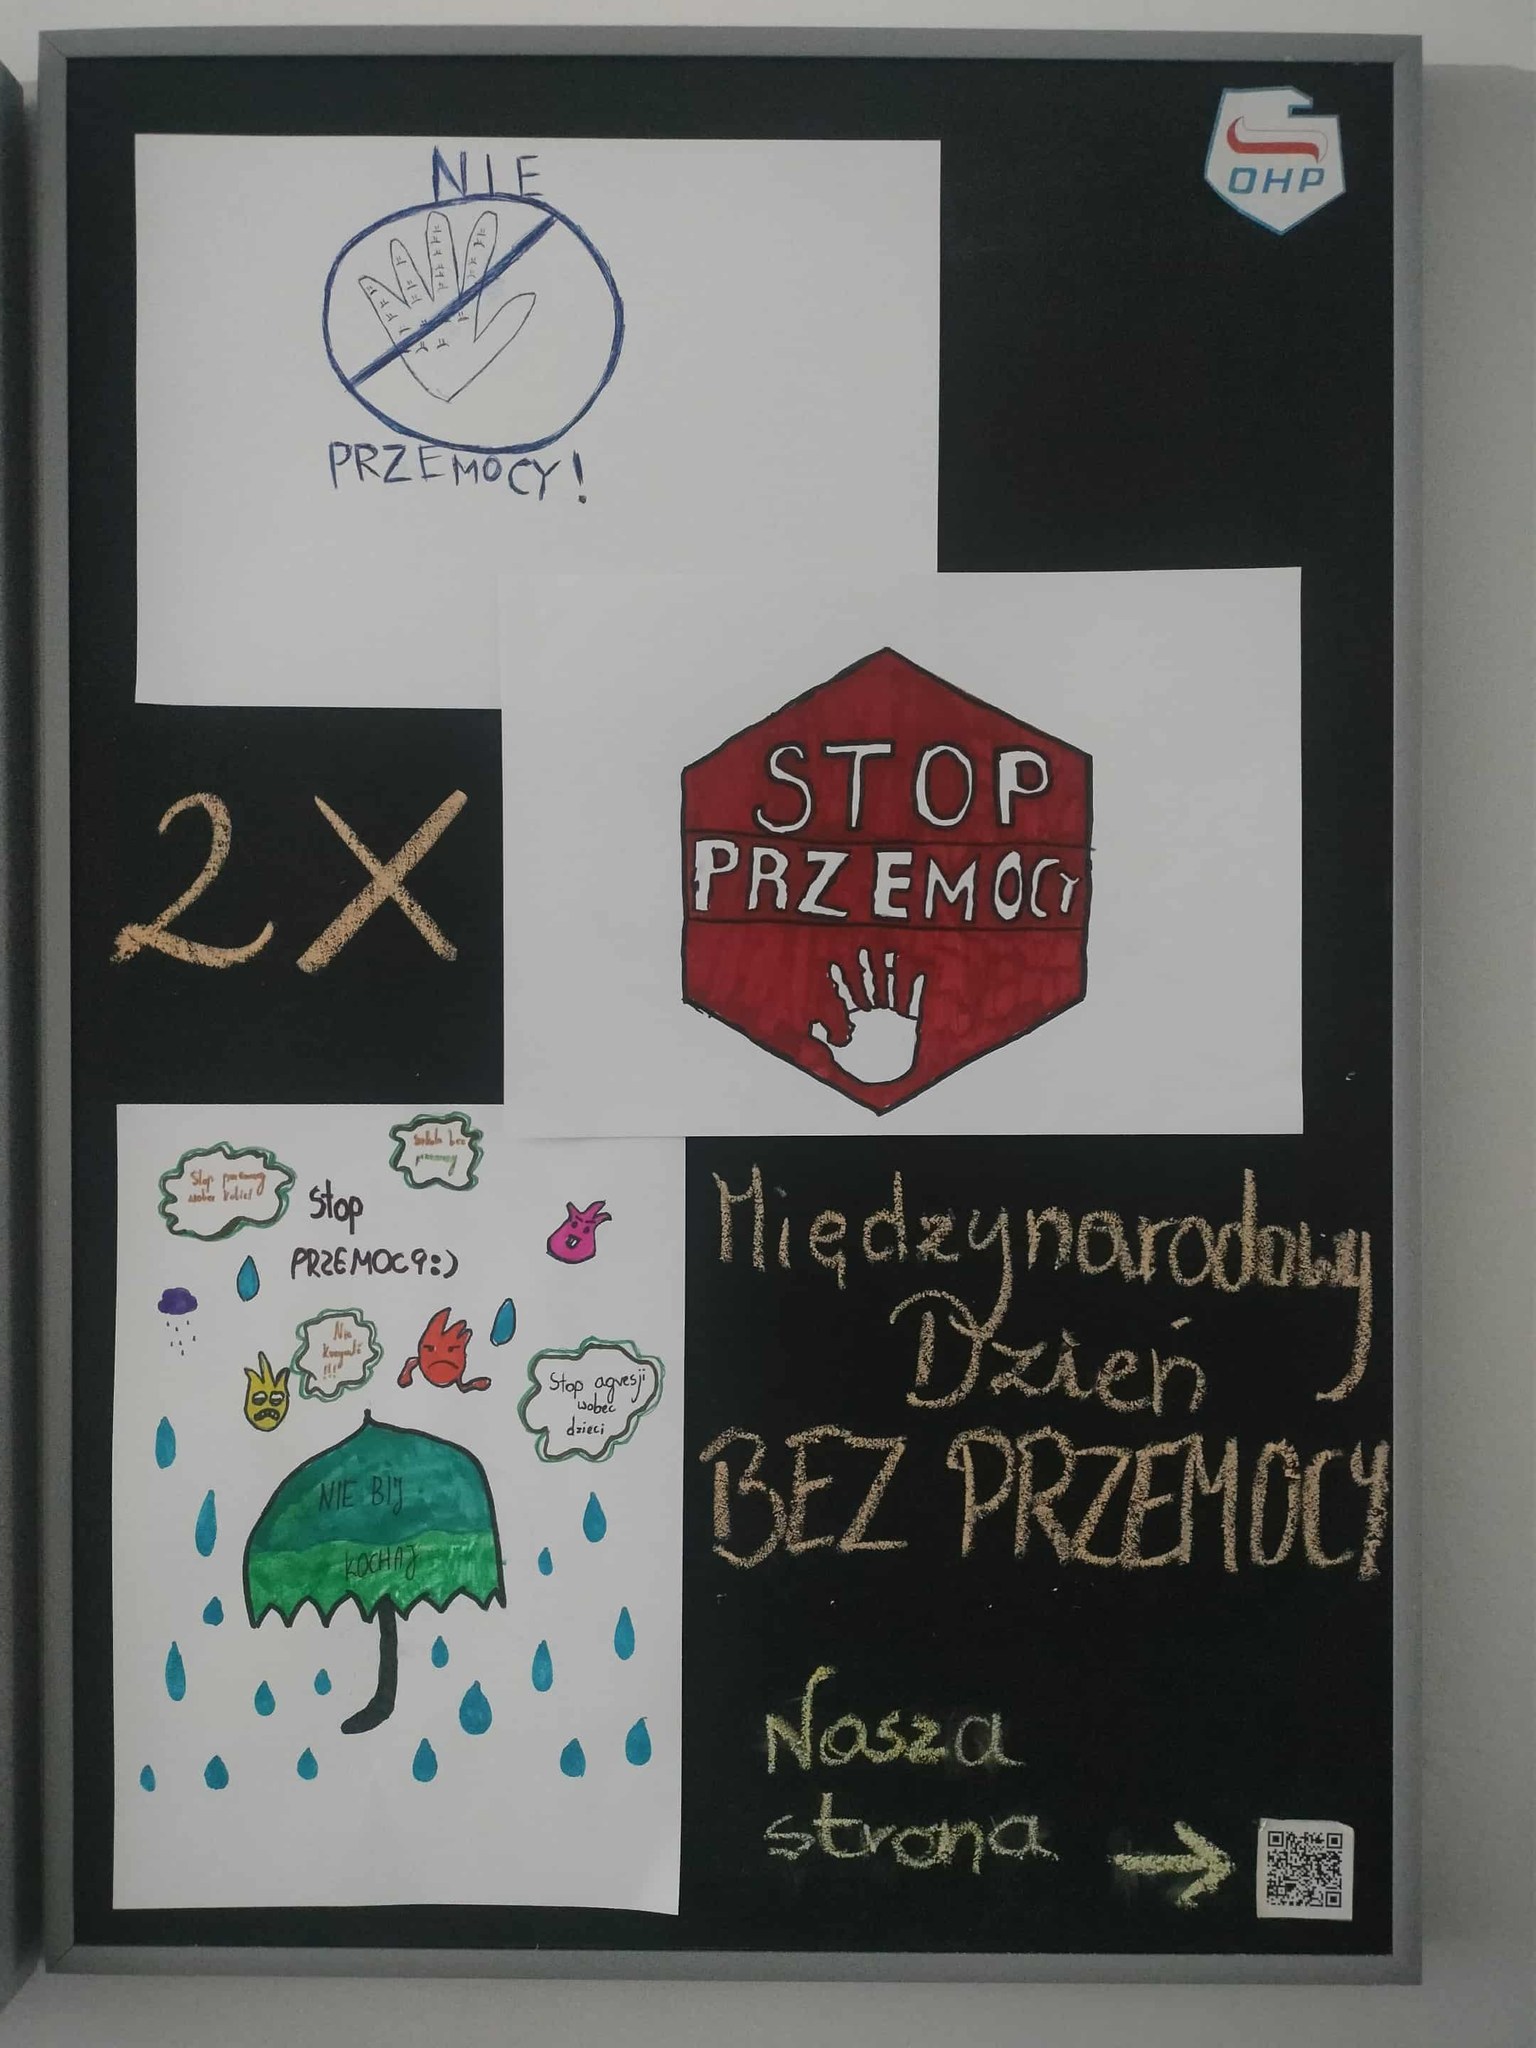 OHP
NIE
PRZEMOCY!
STOP
PRZEMOCY
2X
Szkoła bez
przemocy
Stop przemocy
wobec kobiet
Stop
PRZEMOCY:)
Nie
Krzywdź
!!!
Stop agresji
wobec
dzieci
NIE BIJ
KOCHAJ
Międzynarodowy
Dzień
BEZ PRZEMOCY
Nasza
strona